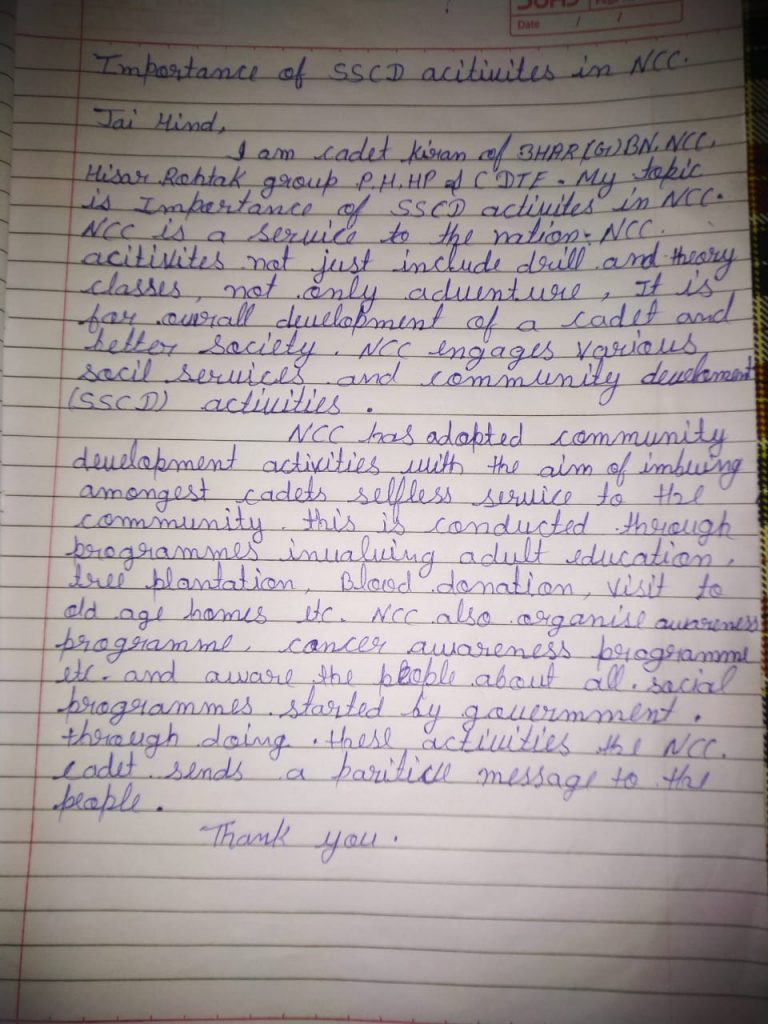 Date / /
Importance of SSCD acitivites in NCC.
Jai Hind,
I am cadet Kiran of 3HAR(G)BN.NCC.
Hisar Rohtak group P.H.HP & C DTE. My topic
is Importance of SSCD activites in NCC.
NCC is a service to the nation. NCC.
acitivites not just include drill and theory
classes, not only adventure, It is
for overall development of a cadet and
better society. NCC engages various
socil services and community development
(SSCD) activities.
NCC has adopted community
development activities with the aim of imbuing
amongest cadets selfless service to the
community. this is conducted through
programmes invalving adult education,
tree plantation, Blood donation, visit to
old age homes etc. NCC also organise awareness
programme, cancer awareness programme
etc. and aware the people about all social
programmes started by government.
through doing these activities the NCC.
cadet sends a message to the
people.
Thank you.